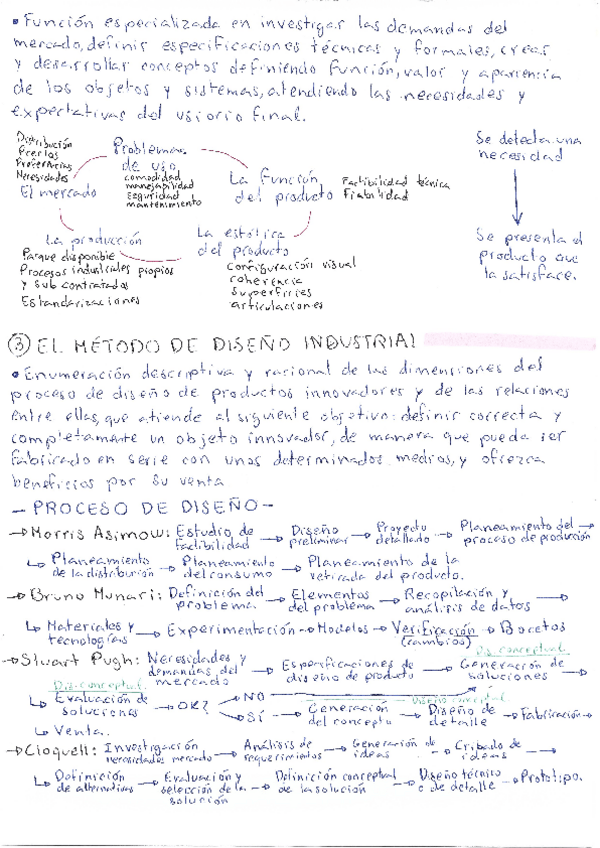 • Función especializada en investigar las demandas del
mercado, definir especificaciones técnicas y formales, crear
y desarrollar conceptos definiendo función, valor y apariencia
de los objetos y sistemas, atendiendo las necesidades y
expectativas del usiorio final.
Distribución
Precios
Preferencias
Necesidades
El mercado
Problemas
de uso
comodidad
manejabilidad
seguridad
mantenimiento
La función
del producto
Factibilidad técnica
Fiabilidad
La producción
Parque disponible
Procesos industriales propios
y sub contratados
Estandarizaciones
La estética
del producto
Configuración visual
coherencia
superficies
articulaciones
Se detecta una
necesidad
Se presenta el
producto que
la satisface.
③ EL MÉTODO DE DISEÑO INDUSTRIAL
• Enumeración descriptiva y racional de las dimensiones del
proceso de diseño de productos innovadores y de las relaciones
entre ellas, que atiende al siguiente objetivo: definir correcta y
completamente un objeto innovador, de manera que pueda ser
fabricado en serie con unos determinados medios, y ofrezca
beneficios por su venta
- PROCESO DE DISEÑO -
→ Morris Asimow: Estudio de factibilidad → Diseño preliminar → Proyecto detallado → Planeamiento del proceso de producción →
↳ Planeamiento de la distribución → Planeamiento del consumo → Planeamiento de la retirada del producto.
→ Bruno Munari: Definición del problema → Elementos del problema → Recopilación y análisis de datos →
↳ Materiales y tecnologías → Experimentación → Modelos → Verificación (cambios) → Bocetos
Dis. conceptual
→ Stuart Pugh: Necesidades y demandas del mercado → Especificaciones de diseño de producto → Generación de soluciones →
Dis. conceptual Diseño conceptual
↳ Evaluación de soluciones → OK? → NO
→ SÍ → Generación del concepto → Diseño de detalle → Fabricación →
↳ Venta.
→ Cloquell: Investigación necesidades mercado → Análisis de requerimientos → Generación de ideas → Cribado de ideas →
↳ Definición de alternativas → Evaluación y selección de la solución → Definición conceptual de la solución → Diseño técnico o de detalle → Prototipo.